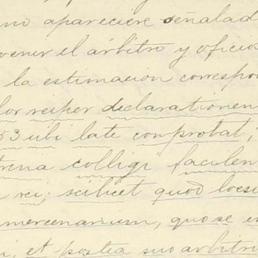 apareciere señalad
venir el árbitro y oficios
la estimacion correspon
declarationem
53 ubi late conprobat,
colligi facilem
rei; scilicet quod
mercenarium, quo se
et postea suo arbitri